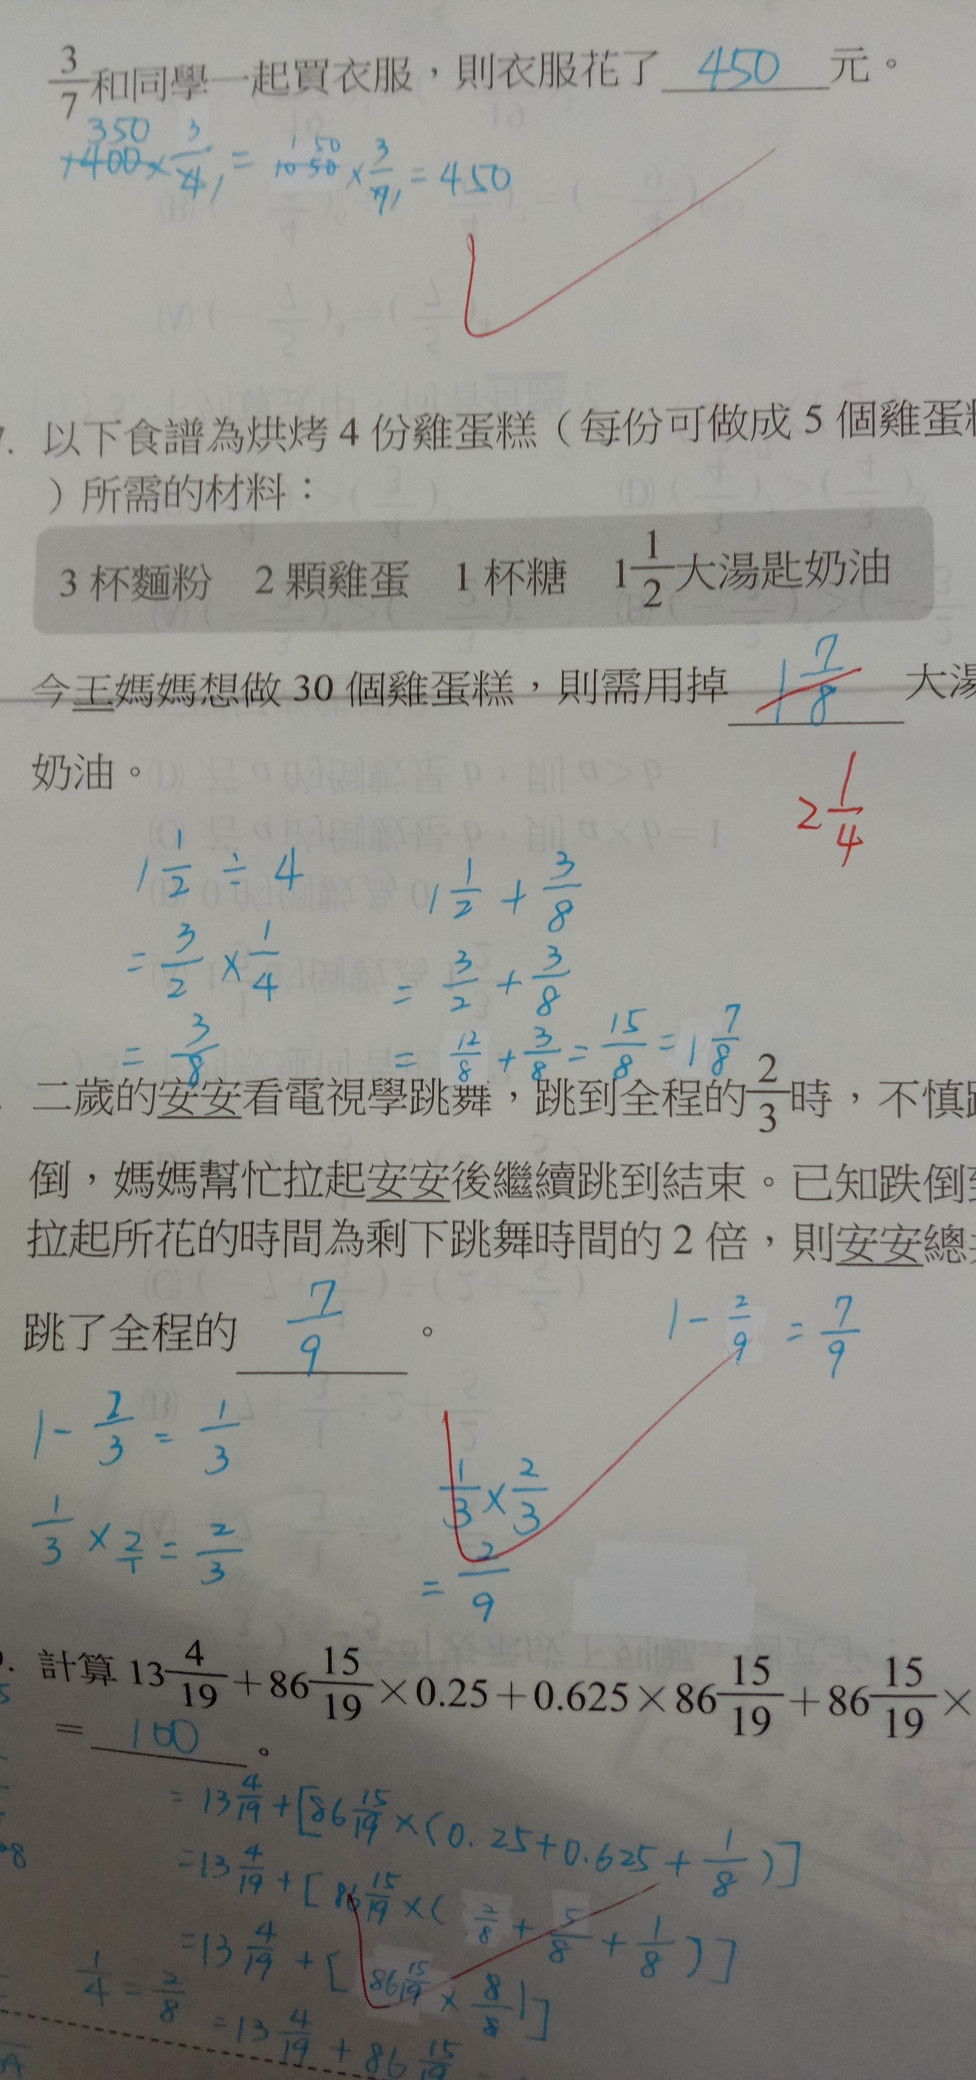 3/7和同學一起買衣服，則衣服花了 450 元。
350
1400×3/4 = 1050 150 ×3/7 = 450
7. 以下食譜為烘烤4份雞蛋糕（每份可做成5個雞蛋
）所需的材料：
3杯麵粉 2顆雞蛋 1杯糖 1 1/2大湯匙奶油
今王媽媽想做30個雞蛋糕，則需用掉 1 7/8 大湯
奶油。
2 1/4
1 1/2 ÷ 4
= 3/2 × 1/4
= 3/8
1 1/2 + 3/8
= 3/2 + 3/8
= 12/8 + 3/8 = 15/8 = 1 7/8
二歲的安安看電視學跳舞，跳到全程的2/3時，不慎
倒，媽媽幫忙拉起安安後繼續跳到結束。已知跌倒
拉起所花的時間為剩下跳舞時間的2倍，則安安總
跳了全程的 7/9 。
1 - 2/9 = 7/9
1 - 2/3 = 1/3
1/3 × 2/1 = 2/3
1/3 × 2/3
= 2/9
計算 13 4/19 + 86 15/19 × 0.25 + 0.625 × 86 15/19 + 86 15/19 ×
= 100 。
= 13 4/19 + [86 15/19 × (0.25 + 0.625 + 1/8)]
= 13 4/19 + [86 15/19 × (2/8 + 5/8 + 1/8)]
= 13 4/19 + [86 15/19 × 8/8]
1/4 = 2/8
= 13 4/19 + 86 15/19